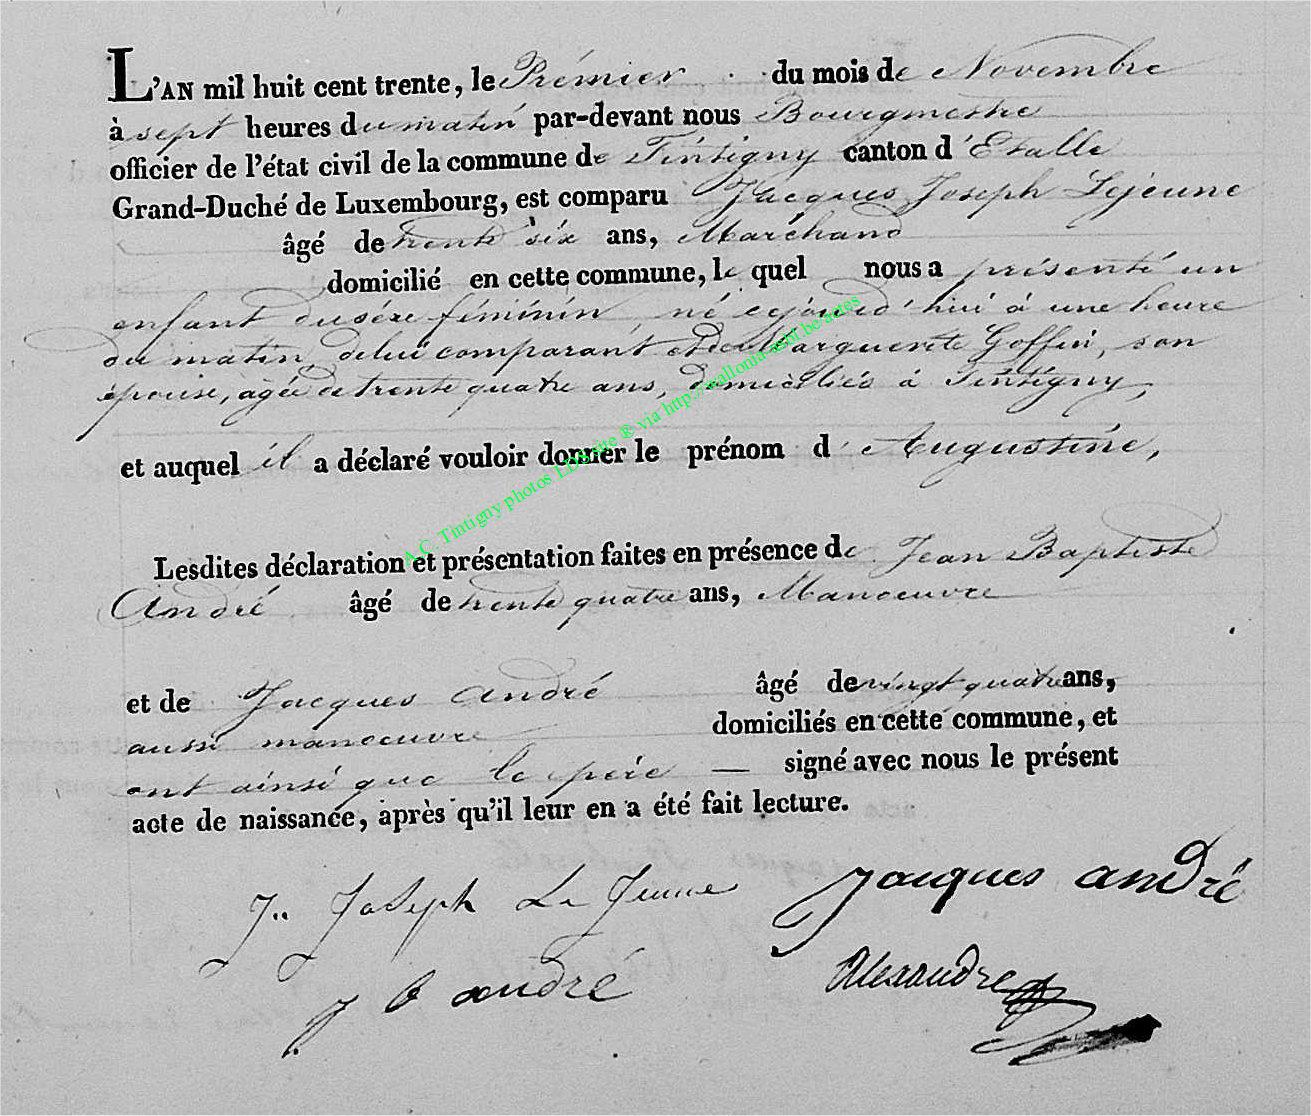 L'AN mil huit cent trente, le Prémier du mois de Novembre
à sept heures du matin par-devant nous Bourgmestre
officier de l'état civil de la commune de Tintigny canton d'Etalle
Grand-Duché de Luxembourg, est comparu Jacques Joseph Lejeune
âgé de trente six ans, Marchand
domicilié en cette commune, le quel nous a présenté un
enfant du séxe féminin né cejourd'hui à une heure
du matin, de lui comparant et de Marguerite Goffin, son
épouse, agée de trente quatre ans, domiciliés à Tintigny,
et auquel il a déclaré vouloir donner le prénom d'Augustine,
Lesdites déclaration et présentation faites en présence de Jean Baptiste
André âgé de trente quatre ans, Manoeuvre
et de Jacques André âgé de vingt quatre ans,
aussi manoeuvre domiciliés en cette commune, et
ont ainsi que le père — signé avec nous le présent
acte de naissance, après qu'il leur en a été fait lecture.
J.. Joseph Le Jeune Jacques andré
J B andré Alexandre
A.C. Tintigny photos LDS site ® via http://wallonia-asbl.be/actes